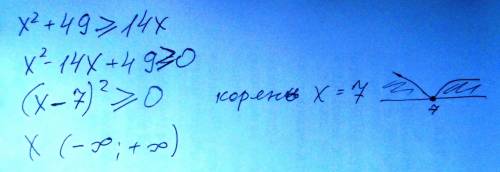 x² + 49 ⩾ 14x
x² - 14x + 49 ⩾ 0
(x - 7)² ⩾ 0 корень x = 7
7
x (-∞; +∞)